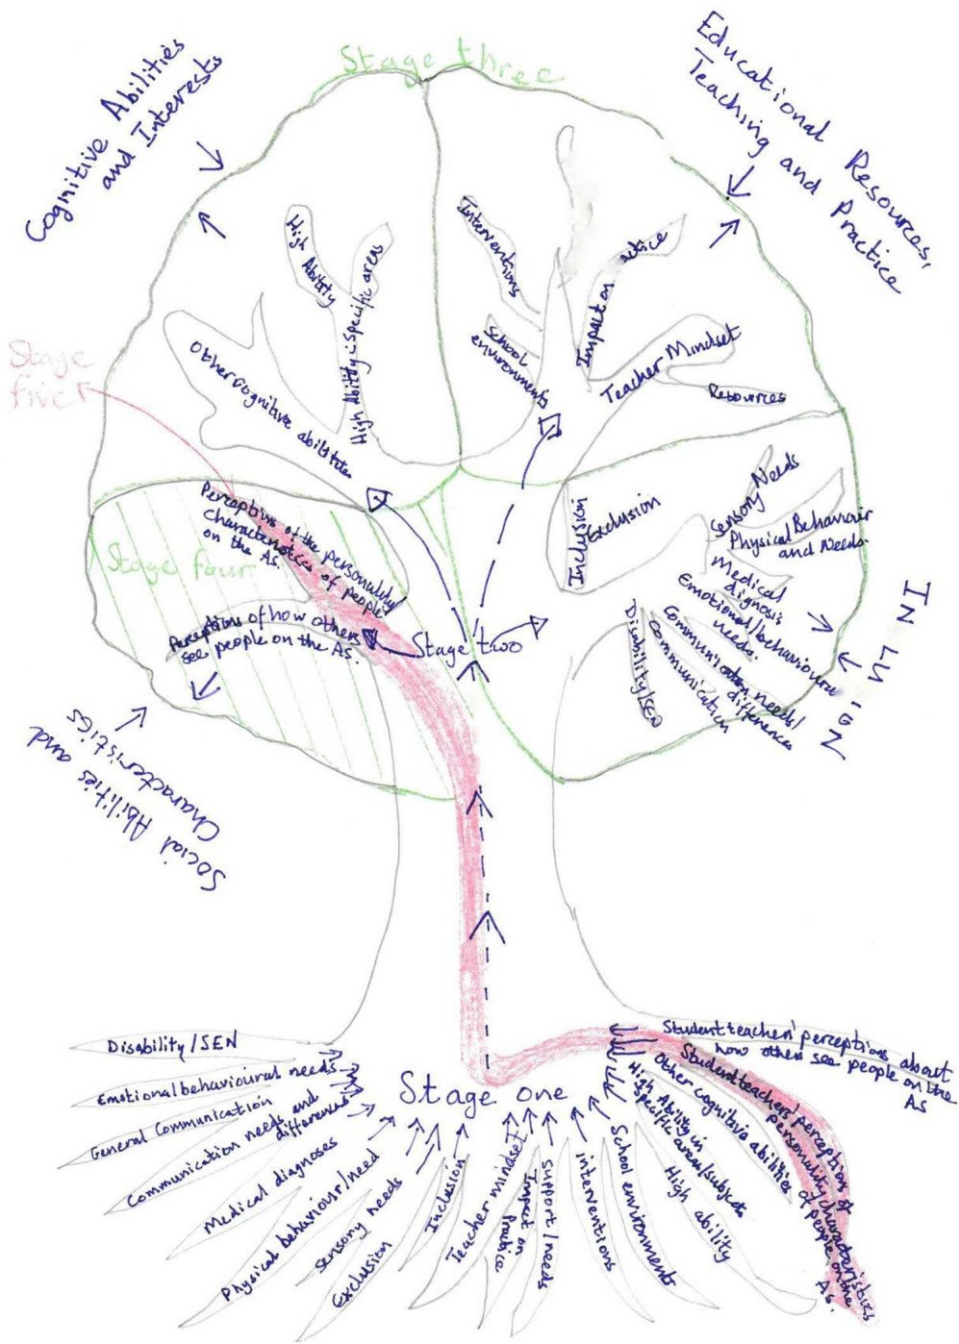 Stage three
Cognitive Abilities
and Interests
Educational Resources,
Teaching and
Practice
High Ability
High Ability: specific areas
Other cognitive abilities
Interventions
School
environments
Impact on
Teacher Mindset
Resources
Stage
five
Stage four
Perceptions of the personality
characteristics of people
on the AS.
Perceptions of how others
see people on the AS.
Stage two
Inclusion
Exclusion
Sensory Needs
Physical Behaviour
and Needs.
Medical
diagnosis
Emotional/behavioural
needs.
Communication needs/
differences
Communication
Disability/SEN
Social Abilities and
Characteristics
Stage one
Disability/SEN
Emotional behavioural needs
General Communication
Communication needs and
differences
Medical diagnoses
Physical behaviour/need
Sensory needs
Exclusion
Inclusion
Teacher mindset
Impact on
Practice
Support/needs
interventions
School environments
High ability
High Ability in
Specific areas/subjects
Other cognitive abilities
Student teachers' perceptions of
personality characteristics
of people on the
AS.
Student teachers' perceptions about
how others see people on the
AS